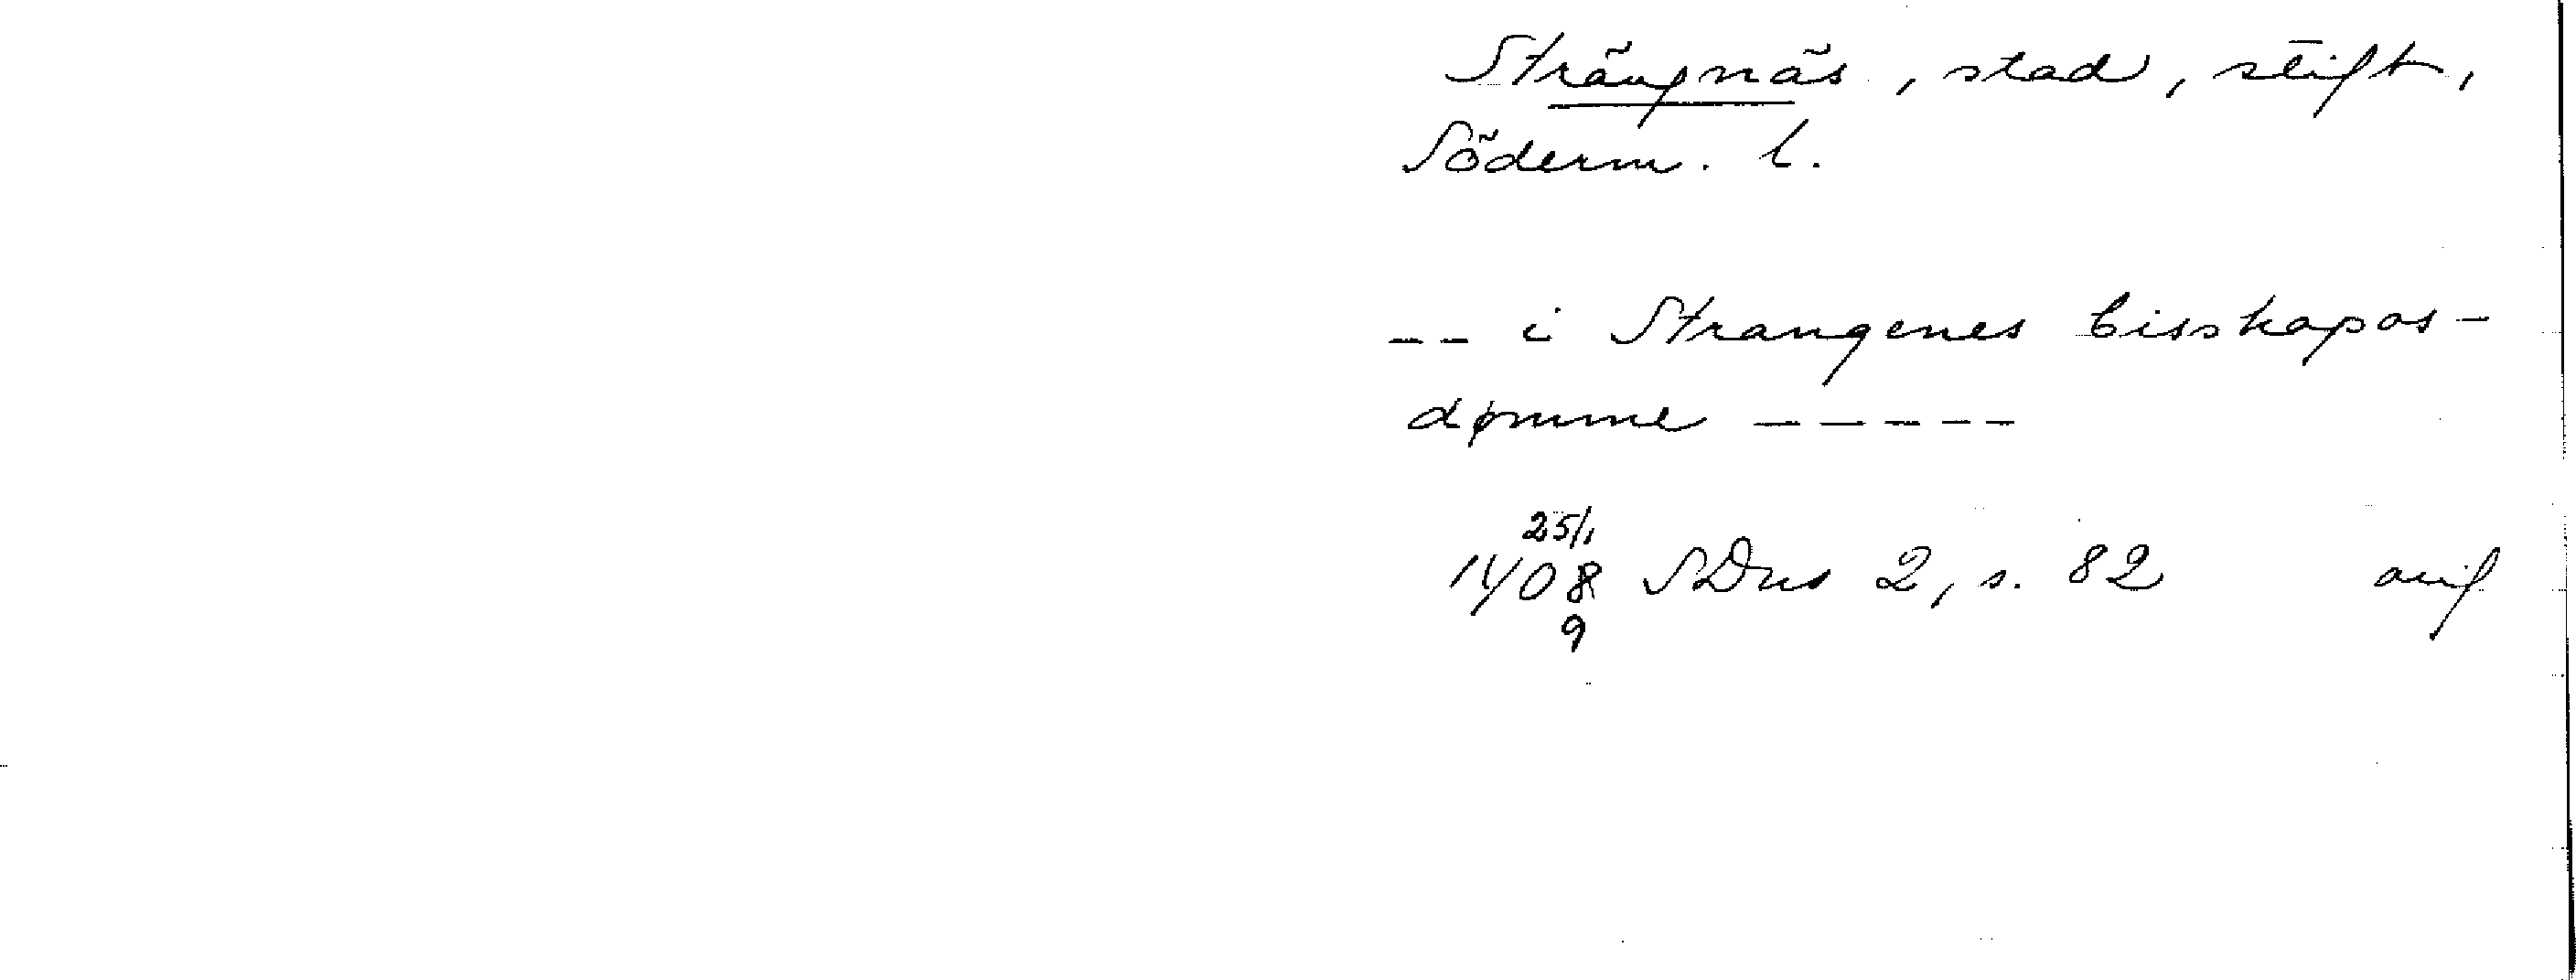 Strängnäs, stad, stift,
Söderm. l.
-- i Strangenes bisskopos-
dømme -----
25/1
1408 SDns 2, s. 82 avif
9